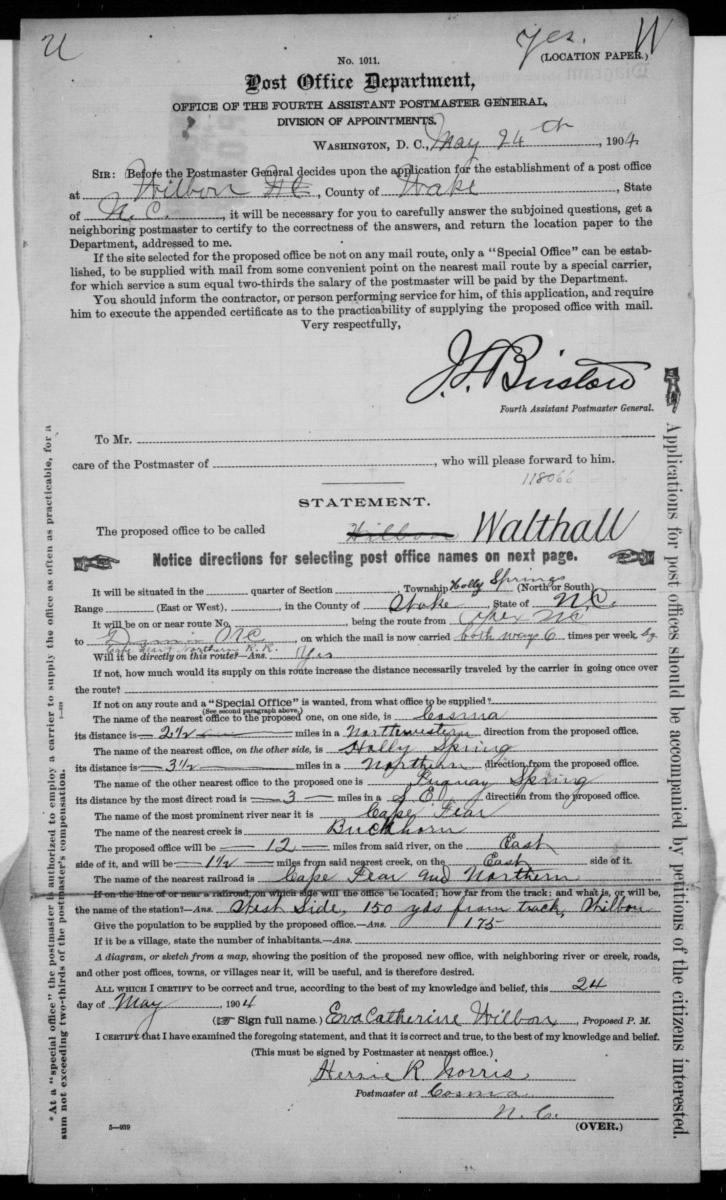 U
yes. W
(LOCATION PAPER.)
No. 1011.
Post Office Department,
OFFICE OF THE FOURTH ASSISTANT POSTMASTER GENERAL,
DIVISION OF APPOINTMENTS.
WASHINGTON, D. C., May 24th, 1904
SIR: Before the Postmaster General decides upon the application for the establishment of a post office
at Wilbon NC, County of Wake, State
of N.C., it will be necessary for you to carefully answer the subjoined questions, get a
neighboring postmaster to certify to the correctness of the answers, and return the location paper to the
Department, addressed to me.
If the site selected for the proposed office be not on any mail route, only a "Special Office" can be estab-
lished, to be supplied with mail from some convenient point on the nearest mail route by a special carrier,
for which service a sum equal two-thirds the salary of the postmaster will be paid by the Department.
You should inform the contractor, or person performing service for him, of this application, and require
him to execute the appended certificate as to the practicability of supplying the proposed office with mail.
Very respectfully,
J. L. Bristow
Fourth Assistant Postmaster General.
To Mr.
care of the Postmaster of , who will please forward to him.
118066
STATEMENT.
The proposed office to be called Wilbon Walthall
Notice directions for selecting post office names on next page.
It will be situated in the quarter of Section , Township Holly Springs (North or South),
Range (East or West), , in the County of Wake, State of N.C.
It will be on or near route No. , being the route from Apex NC
to NC, on which the mail is now carried both ways 6 times per week, by
Cape Fear & Northern R.R.
Will it be directly on this route?—Ans. Yes
If not, how much would its supply on this route increase the distance necessarily traveled by the carrier in going once over
the route?
If not on any route and a "Special Office" is wanted, from what office to be supplied?
(See second paragraph above.)
The name of the nearest office to the proposed one, on one side, is Cosma
its distance is 2 1/2 miles in a Northwestern direction from the proposed office.
The name of the nearest office, on the other side, is Holly Spring
its distance is 3 1/2 miles in a Northern direction from the proposed office.
The name of the other nearest office to the proposed one is Fuquay Spring
its distance by the most direct road is 3 miles in a S E direction from the proposed office.
The name of the most prominent river near it is Cape Fear
The name of the nearest creek is Buckhorn
The proposed office will be 12 miles from said river, on the East
side of it, and will be 1 1/2 miles from said nearest creek, on the East side of it.
The name of the nearest railroad is Cape Fear and Northern
If on the line of or near a railroad, on which side will the office be located; how far from the track; and what is, or will be,
the name of the station?—Ans. West Side, 150 yds from track, Wilbon
Give the population to be supplied by the proposed office.—Ans. 175
If it be a village, state the number of inhabitants.—Ans.
A diagram, or sketch from a map, showing the position of the proposed new office, with neighboring river or creek, roads,
and other post offices, towns, or villages near it, will be useful, and is therefore desired.
ALL WHICH I CERTIFY to be correct and true, according to the best of my knowledge and belief, this 24
day of May, 1904
(☞ Sign full name.) Eva Catherine Wilbon, Proposed P. M.
I CERTIFY that I have examined the foregoing statement, and that it is correct and true, to the best of my knowledge and belief.
(This must be signed by Postmaster at nearest office.)
R. Norris
Postmaster at Cosma
N. C.
5—939
(OVER.)
*At a "special office" the postmaster is authorized to employ a carrier to supply the office as often as practicable, for a
sum not exceeding two-thirds of the postmaster's compensation.
Applications for post offices should be accompanied by petitions of the citizens interested.